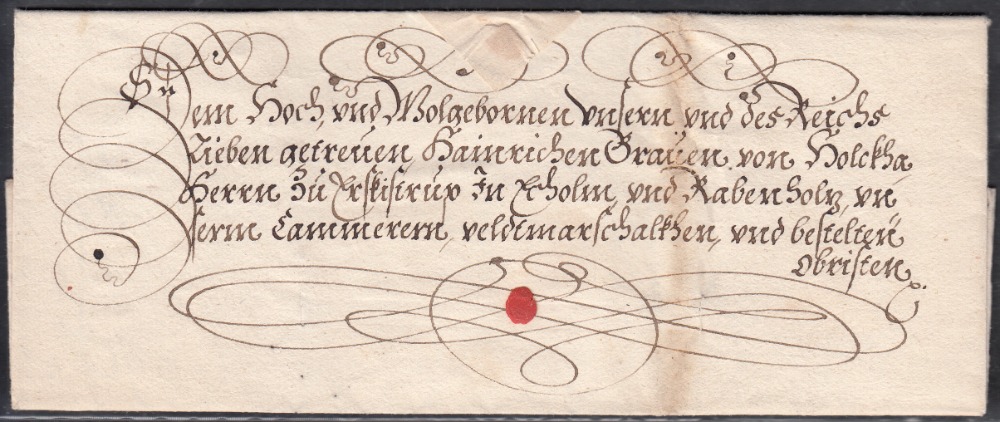 Dem Hoch und Wolgebornen unsern und des Reichs
Lieben getreuen Hainrichen Graüen von Holckha
Herrn Zu Eskisirup In Echolm und Rabenholz, un
serm Cammerern veldtmarschalkhen, und bestelten
Obristen